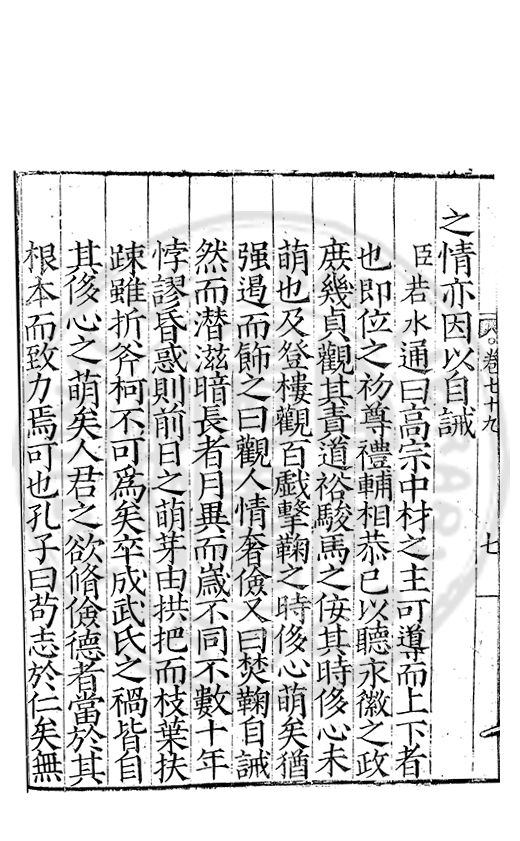 之情亦因以自誡
臣若水通曰高宗中材之主可導而上下者
也即位之初尊禮輔相恭已以聽永徽之政
庻幾貞觀其責道裕駿馬之佞其時侈心未
萌也及登樓觀百戲擊鞠之時侈心萌矣猶
强遏而飾之曰觀人情奢儉又曰焚鞠自誡
然而潜滋暗長者月異而嵗不同不數十年
悖謬昏惑則前日之萌芽由拱把而枝葉扶
踈雖折斧柯不可為矣卒成武氏之禍皆自
其侈心之萌矣人君之欲脩儉德者當於其
根本而致力焉可也孔子曰苟志於仁矣無
卷七十九
七